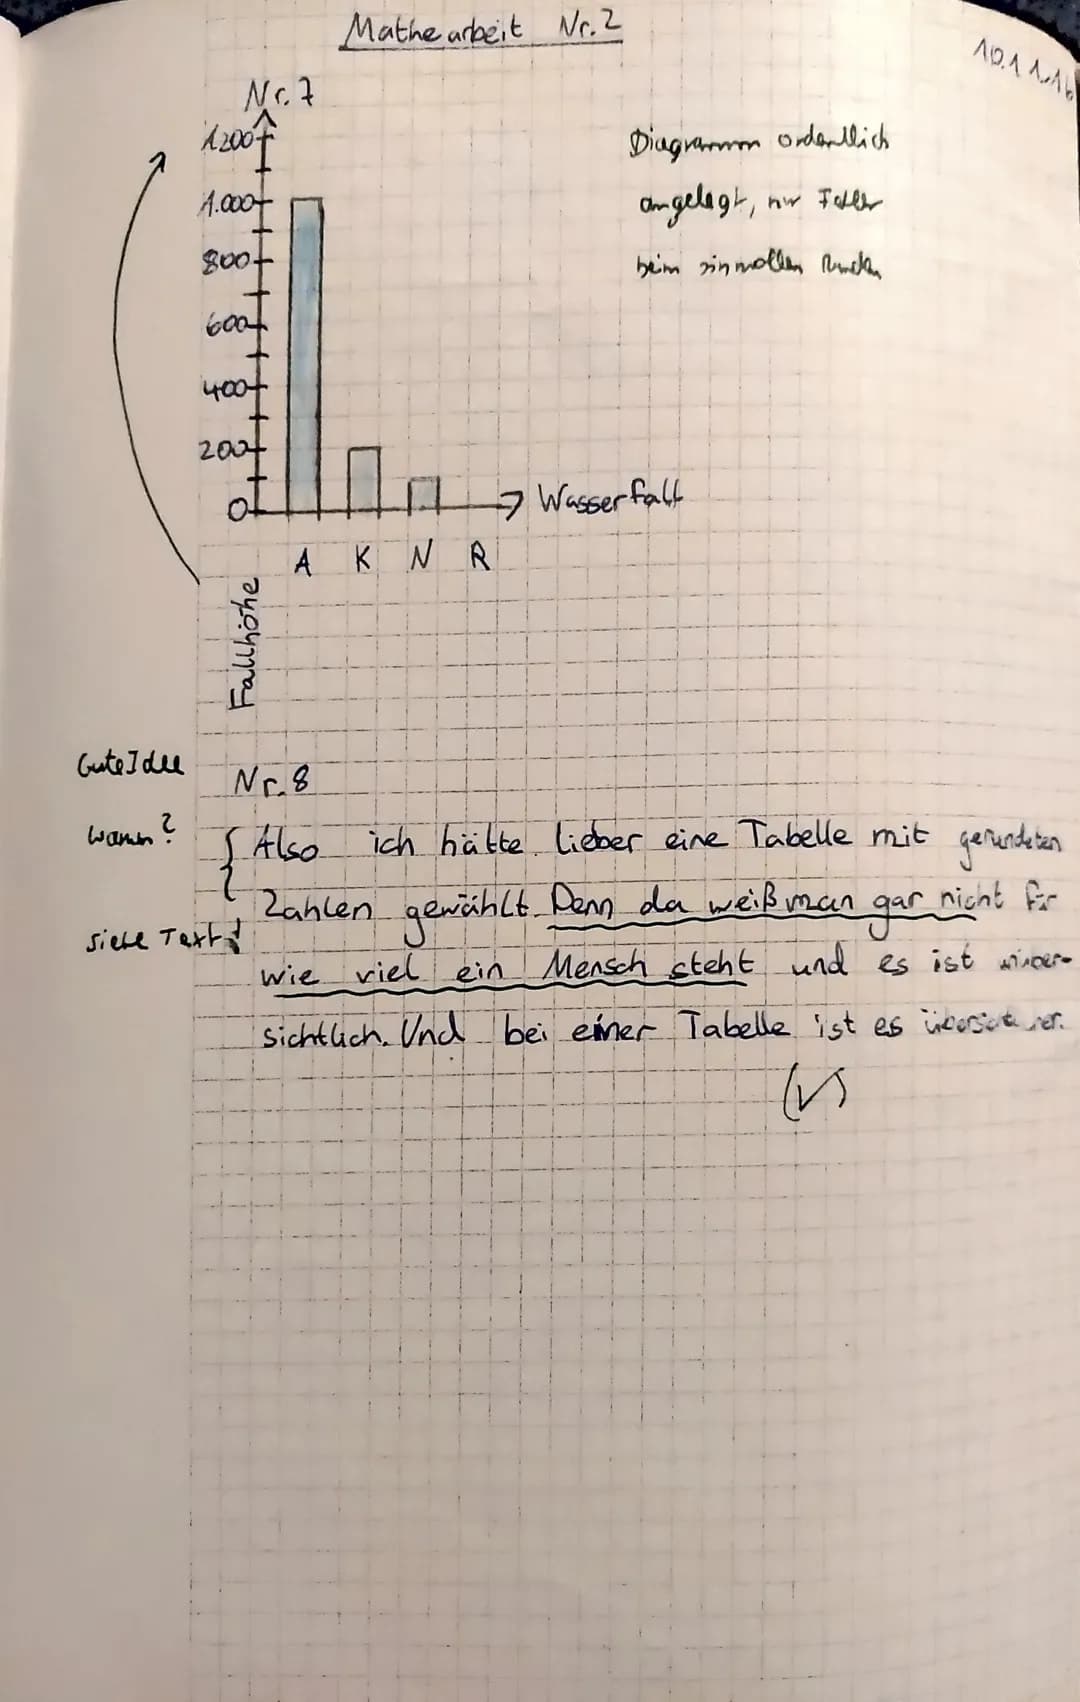 Mathearbeit Nr. 2
10.11.16
Nr. 7
1200
1.000
800
600
400
200
0
A K N R
Wasserfall
Fallhöhe
Diagramm ordentlich
angelegt, nur Fehler
beim sinnvollen Runden
Gute Idee
Nr. 8
warum?
Also ich hätte lieber eine Tabelle mit gerundeten
Zahlen gewählt. Denn da weiß man gar nicht für
siehe Text!
wie viel ein Mensch steht und es ist
sichtlich. Und bei einer Tabelle ist es übersichtlicher.
(✓)